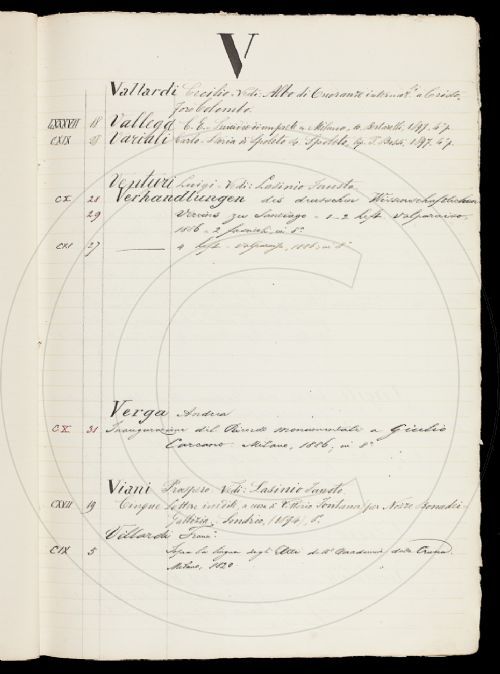 V
Vallardi Cecilia. Vedi: Albo di Onoranze internaz.li a Cristo-
foro Colombo.
LXXXVII 18 Vallega C. E. Milano, 1897. 4°
CXIX 28 Carlo. Storia di Spoleto Spoleto, tip. 1897, 4°
Venturi Luigi. Vedi: Lasinio Fausto
CX. 28 Verhandlungen des deutschen Wissenschaftlichen
29 Vereins zu Santiago - 1-2 heft. Valparaiso,
1886 - 2 in 8°
CXI 27 ——— 4 heft - Valparaiso, 1886, in 8°
Verga Andrea
CX. 31 Inaugurazione del Ricordo monumentale a Giulio
Carcano. Milano, 1886; in 8°
Viani Prospero. Vedi: Lasinio Fausto.
CXVII 19 Cinque lettere inedite, a cura di Vittorio Fontana per Nozze Bonadei-
Sondrio, 1894, 8°
Villardi Franc.
CIX 5 Sopra la lingua degli Atti dell' Accademia della Crusca.
Milano, 1820